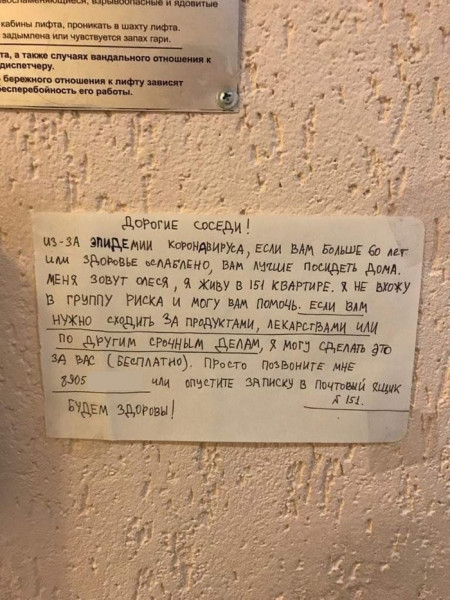 взрывоопасные и ядовитые
кабины лифта, проникать в шахту лифта.
задымлена или чувствуется запах гари.
а также случаях вандального отношения к
диспетчеру.
бережного отношения к лифту зависят
бесперебойность его работы.
ДОРОГИЕ СОСЕДИ!
ИЗ-ЗА ЭПИДЕМИИ КОРОНАВИРУСА, ЕСЛИ ВАМ БОЛЬШЕ 60 ЛЕТ
ИЛИ ЗДОРОВЬЕ ОСЛАБЛЕНО, ВАМ ЛУЧШЕ ПОСИДЕТЬ ДОМА.
МЕНЯ ЗОВУТ ОЛЕСЯ, Я ЖИВУ В 151 КВАРТИРЕ. Я НЕ ВХОЖУ
В ГРУППУ РИСКА И МОГУ ВАМ ПОМОЧЬ. ЕСЛИ ВАМ
НУЖНО СХОДИТЬ ЗА ПРОДУКТАМИ, ЛЕКАРСТВАМИ ИЛИ
ПО ДРУГИМ СРОЧНЫМ ДЕЛАМ, Я МОГУ СДЕЛАТЬ ЭТО
ЗА ВАС (БЕСПЛАТНО). ПРОСТО ПОЗВОНИТЕ МНЕ
8905 ИЛИ ОПУСТИТЕ ЗАПИСКУ В ПОЧТОВЫЙ ЯЩИК
151.
БУДЕМ ЗДОРОВЫ!